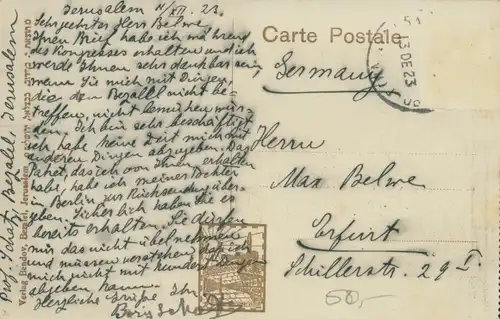 Jerusalem 11/XII. 23.
Sehr geehrter Herr Belwe
Ihren Brief habe ich während
des Kongresses erhalten und ich
werde Ihnen sehr dankbar sein,
wenn Sie mich mit Dingen,
die den Bezallel nicht be-
treffen, nicht bemühen wür-
den. Ich bin sehr beschäftigt
ich habe keine Zeit mich mit
anderen Dingen abzugeben. Das
Paket, das ich von Ihnen erhalten
habe, habe ich meiner Tochter
in Berlin zur Rücksendung über-
geben. Sicherlich haben Sie es
bereits erhalten. Sie dürfen
mir das nicht übelnehmen
und müssen verstehen daß ich
mich nicht mit hundert Dingen
abgeben kann.
Herzliche Grüße Ihr
Boris Schatz
Prof. Schatz, Bezalel, Jerusalem
Verlag Bendov, Bezalel, Jerusalem
Carte Postale
13 DE 23
Germany
Herrn
Max Belwe
Erfurt
Schillerstr. 29 I.
50,-